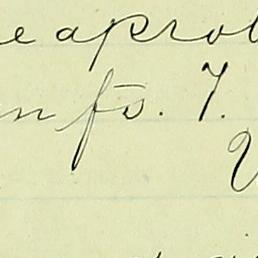 e aprob
n fs. 7.